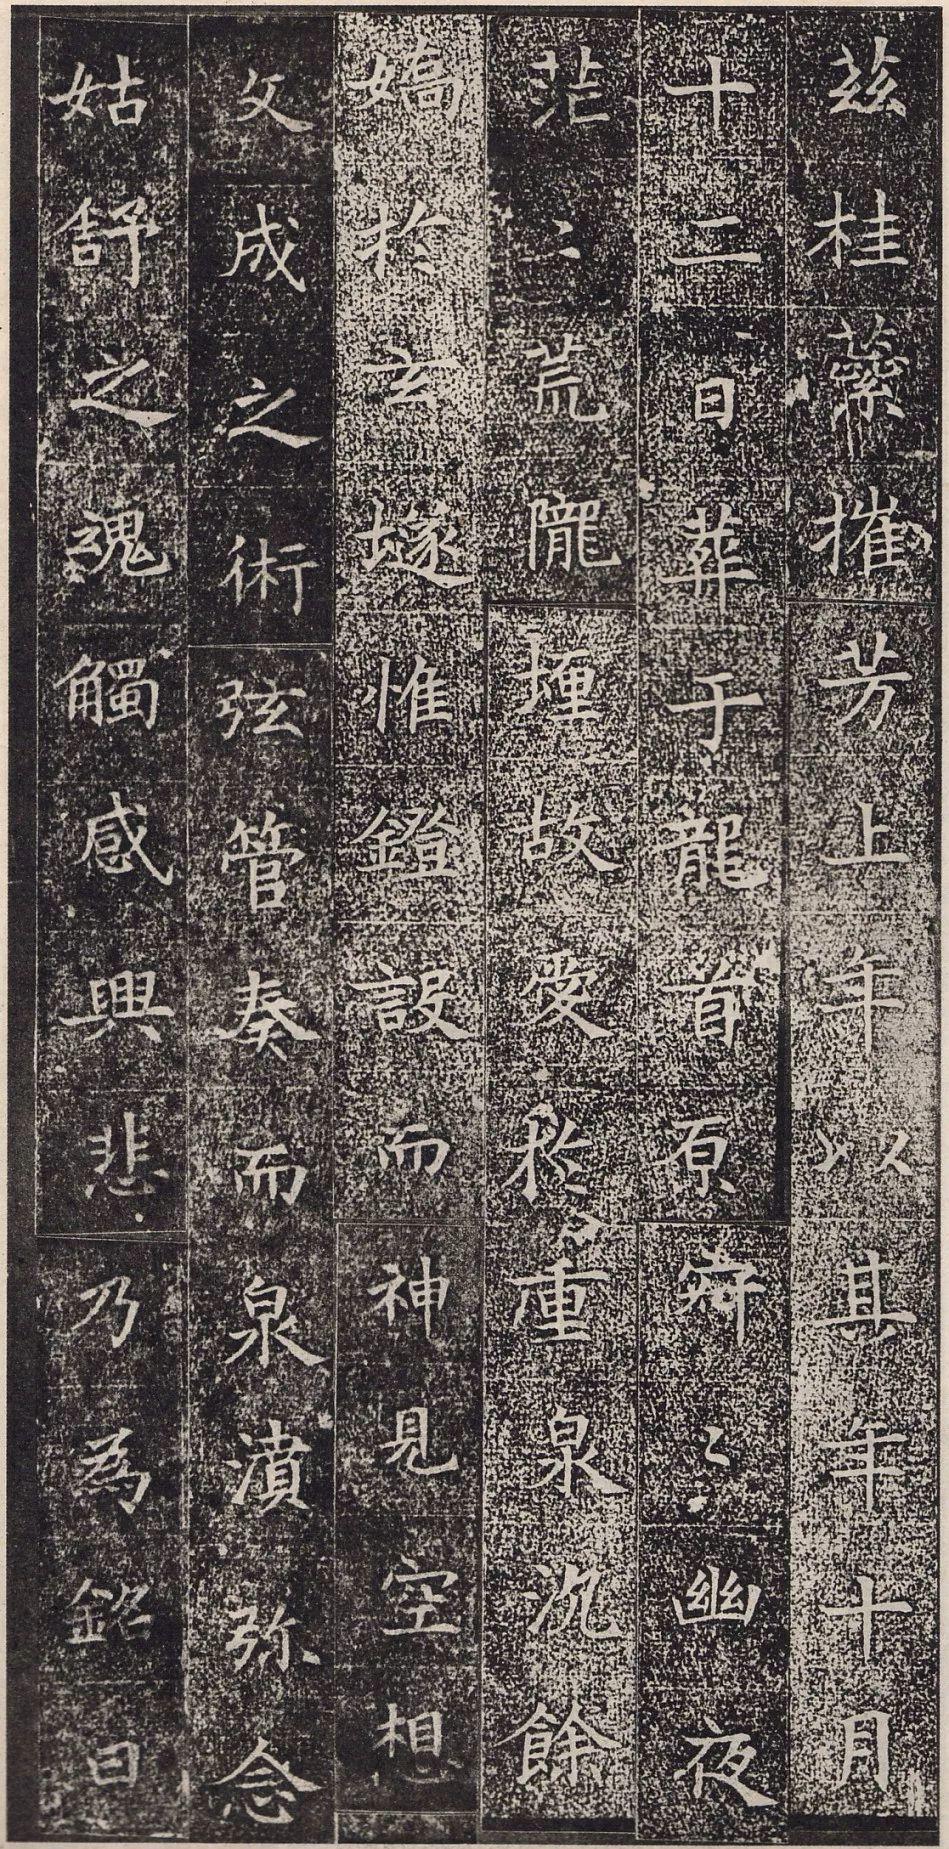 茲桂蘂摧芳上年以其年十月
十二日葬于龍首原寂〻幽夜
茫〻荒隴埋故愛扵重泉沉餘
嬌扵玄璲惟鐙設而神見空想
文成之術弦管奏而泉濆弥念
姑舒之魂觸感興悲乃為銘曰